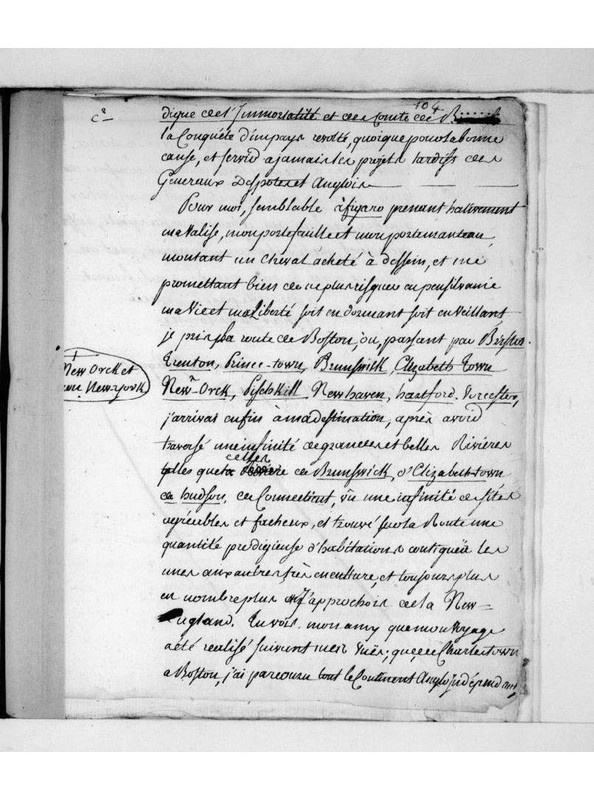 104
digne de l'Immortalité et de Comte de B
la Conquête d'un pays revolté, quoique pour la bonne
cause, et servir a jamais les projets tardifs des
Generaux Despotes et Anglois
Pour moi, semblable à figaro prenant hativement
ma Valise, mon portefeuille et mon portemanteau,
montant un cheval acheté à dessein, et me
promettant bien de ne plus risquer en pensilvanie
ma Vie et ma Liberté soit en dormant soit en Veillant
je pris la route de Boston ou, passant par Bristol
Trenton, Prince-town, Brunswick, Elizabeth Town
New-Orck, Fischkill New haven, hartford Worcester,
New Orck et
New-york
j'arrivai enfin à ma destination, après avoir
traversé une infinité de grandes et belles Rivieres
telles que celles de Brunswick, d'Elizabeth-town
de hudson, de Connecticut, vu une infinité de sites
agréables et facheux, et trouvé sur la Route une
quantité prodigieuse d'habitations contiguës les
unes aux autres très en culture, et toujours plus
en nombre plus j'approchois de la New-
England. Tu vois, mon amy que mon Voyage
a été realisé suivant mes Vues; que de Charlestown
a Boston, j'ai parcouru tout le Continent Anglo independant,